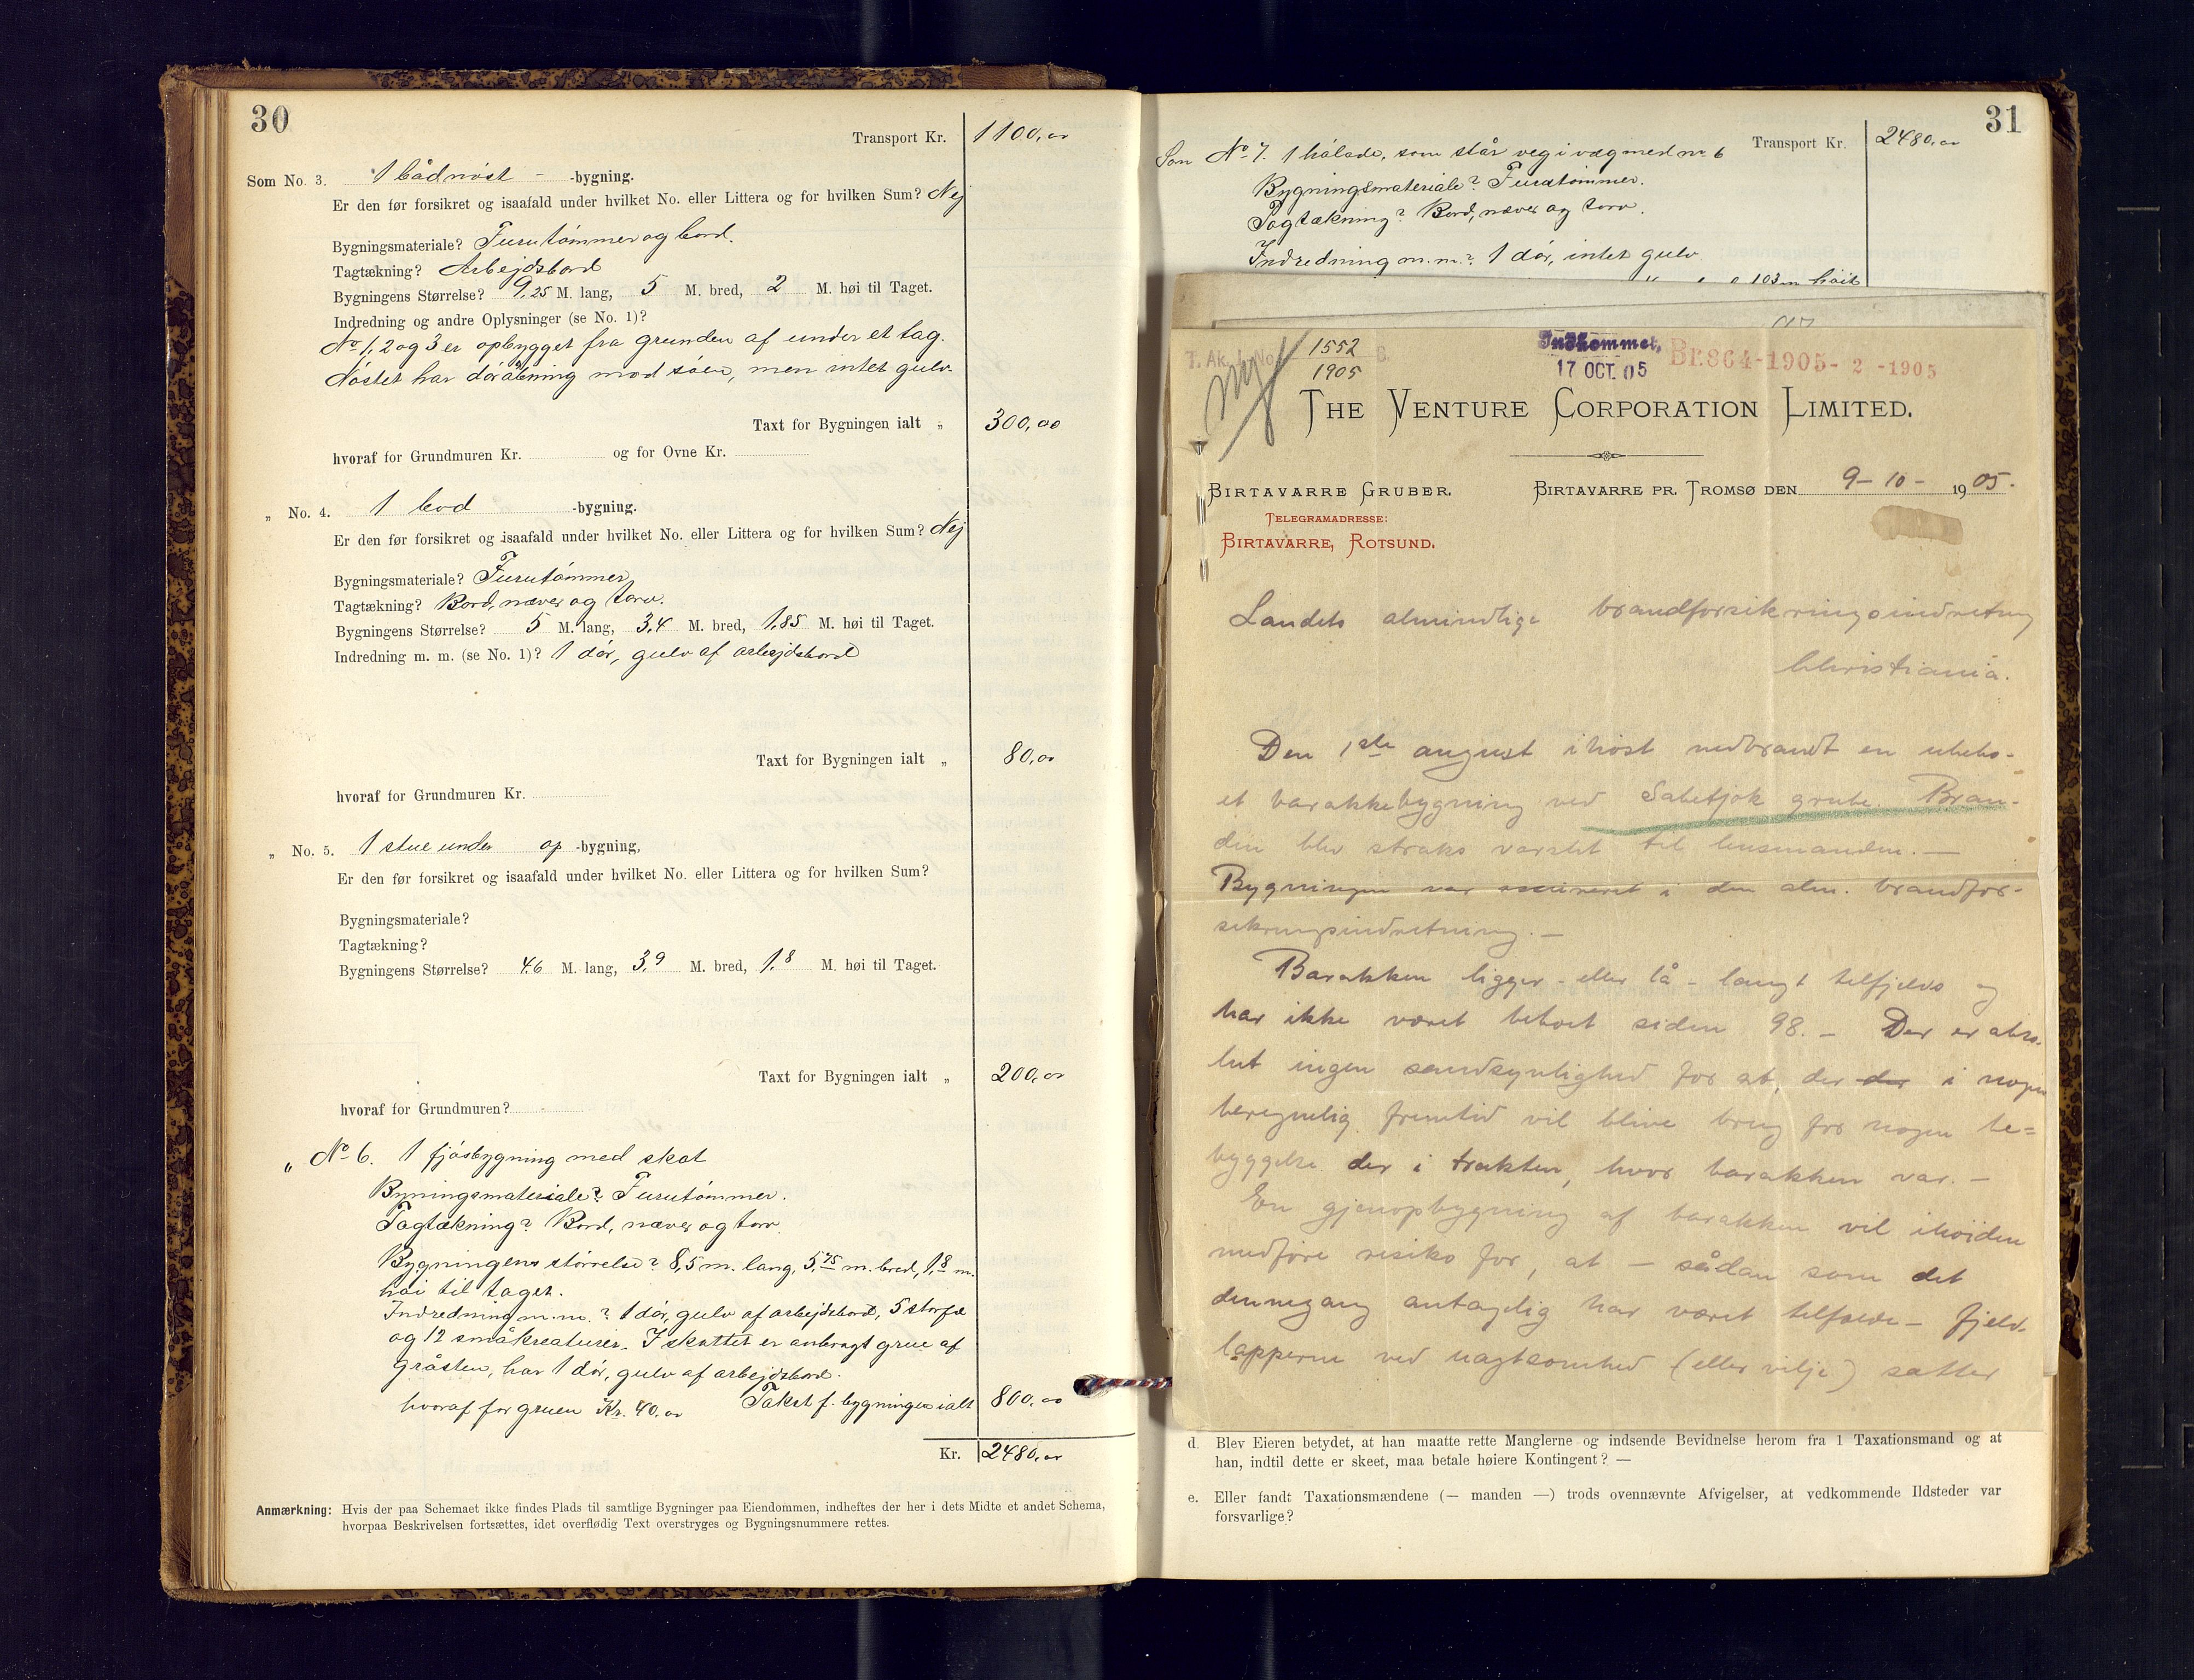 30
Transport Kr. 1100,00
Som No. 3. 1 bådnøst - -bygning.
Er den før forsikret og isaafald under hvilket No. eller Littera og for hvilken Sum? Nej
Bygningsmateriale? Furutømmer og bord.
Tagtækning? Arbejdsbord
Bygningens Størrelse? 9,25 M. lang, 5 M. bred, 2 M. høi til Taget.
Indredning og andre Oplysninger (se No. 1)?
No 1, 2 og 3 er opbygget fra grunden af under et tag.
Nøstet har døråbning mod søen, men intet gulv.
Taxt for Bygningen ialt „ 300,00
hvoraf for Grundmuren Kr. og for Ovne Kr.
„ No. 4. 1 bod -bygning.
Er den før forsikret og isaafald under hvilket No. eller Littera og for hvilken Sum? Nej
Bygningsmateriale? Furutømmer
Tagtækning? Bord, næver og torv.
Bygningens Størrelse? 5 M. lang, 3,4 M. bred, 1,85 M. høi til Taget.
Indredning m. m. (se No. 1)? 1 dør, gulv af arbejdsbord
Taxt for Bygningen ialt „ 80,00
hvoraf for Grundmuren Kr.
„ No. 5. 1 stue under op -bygning,
Er den før forsikret og isaafald under hvilket No. eller Littera og for hvilken Sum?
Bygningsmateriale?
Tagtækning?
Bygningens Størrelse? 4,6 M. lang, 3,9 M. bred, 1,8 M. høi til Taget.
Taxt for Bygningen ialt „ 200,00
hvoraf for Grundmuren?
„ No 6. 1 fjøsbygning med skot
Bygningsmateriale? Furutømmer.
Tagtækning? Bord, næver og torv
Bygningens størrelse? 8,5 m. lang, 5,75 m. bred, 1,8 m.
høi til taget.
Indredning m. m.? 1 dør, gulv af arbejdsbord, 5 storfæ
og 12 småkreaturer. I skottet er anbragt grue af
gråsten, har 1 dør, gulv af arbejdsbord.
hvoraf for gruen Kr. 40,00 Takst f. bygningen ialt 800,00
Kr. 2480,00
Anmærkning: Hvis der paa Schemaet ikke findes Plads til samtlige Bygninger paa Eiendommen, indheftes der her i dets Midte et andet Schema,
hvorpaa Beskrivelsen fortsættes, idet overflødig Text overstryges og Bygningsnummere rettes.
31
Transport Kr. 2480,00
Som No 7. 1 hølade, som står veg i væg med nr 6
Bygningsmateriale? Furutømmer.
Tagtækning? Bord, næver og torv.
Indredning m. m.? 1 dør, intet gulv
T. Ak. No. 1552 B.
1905
Indkommet,
17 OCT. 05
Br. 864-1905- 2 -1905
THE VENTURE CORPORATION LIMITED.
BIRTAVARRE GRUBER. BIRTAVARRE PR. TROMSØ DEN 9-10- 1905.
TELEGRAMADRESSE:
BIRTAVARRE, ROTSUND.
Landets almindlige brandforsikringsindretning
Christiania.
Den 1ste august ihøst nedbrandt en ubebo-
et barakkebygning ved Sabetjok grube. Bran-
den blev straks varslet til lensmanden. —
Bygningen var assureret i den alm. brandfor-
sikringsindretning. —
Barakken ligger - eller lå - langt tilfjelds og
har ikke været beboet siden 98. - Der er abso-
lut ingen sandsynlighed for at, der der i nogen
beregnelig fremtid vil blive brug for nogen be=
byggelse der i trakten, hvor barakken var. -
En gjenopbygning af barakken vil ihøiden
medføre risiko for, at - sådan som det
dennegang antagelig har været tilfælde - fjeld-
lapperne ved uagtsomhed (eller vilje) sætter
d. Blev Eieren betydet, at han maatte rette Manglerne og indsende Bevidnelse herom fra 1 Taxationsmand og at
han, indtil dette er skeet, maa betale høiere Kontingent? —
e. Eller fandt Taxationsmændene (— manden —) trods ovennævnte Afvigelser, at vedkommende Ildsteder var
forsvarlige?